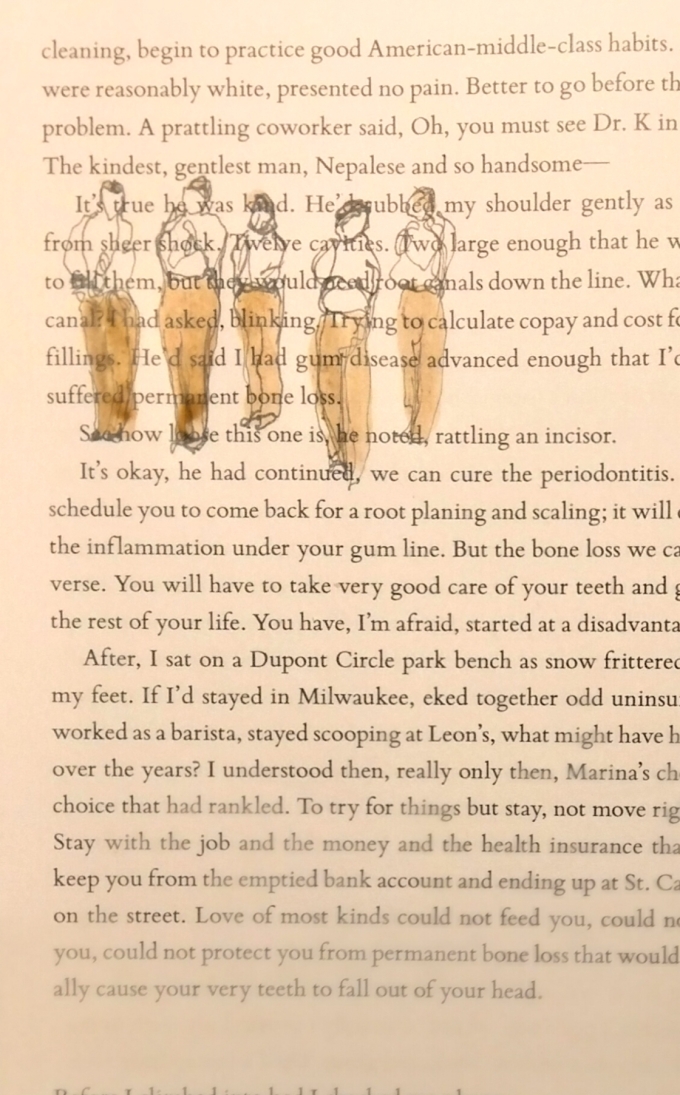 cleaning, begin to practice good American-middle-class habits.
were reasonably white, presented no pain. Better to go before th
problem. A prattling coworker said, Oh, you must see Dr. K in
The kindest, gentlest man, Nepalese and so handsome—
It's true he was kind. He'd rubbed my shoulder gently as
from sheer shock. Twelve cavities. (Two large enough that he w
to fill them, but they would need root canals down the line. Wha
canal? I had asked, blinking. Trying to calculate copay and cost fo
fillings. He'd said I had gum disease advanced enough that I'd
suffered permanent bone loss.
See how loose this one is, he noted, rattling an incisor.
It's okay, he had continued, we can cure the periodontitis.
schedule you to come back for a root planing and scaling; it will
the inflammation under your gum line. But the bone loss we ca
verse. You will have to take very good care of your teeth and g
the rest of your life. You have, I'm afraid, started at a disadvanta
After, I sat on a Dupont Circle park bench as snow frittered
my feet. If I'd stayed in Milwaukee, eked together odd uninsu
worked as a barista, stayed scooping at Leon's, what might have h
over the years? I understood then, really only then, Marina's ch
choice that had rankled. To try for things but stay, not move rig
Stay with the job and the money and the health insurance tha
keep you from the emptied bank account and ending up at St. Ca
on the street. Love of most kinds could not feed you, could no
you, could not protect you from permanent bone loss that would
ally cause your very teeth to fall out of your head.